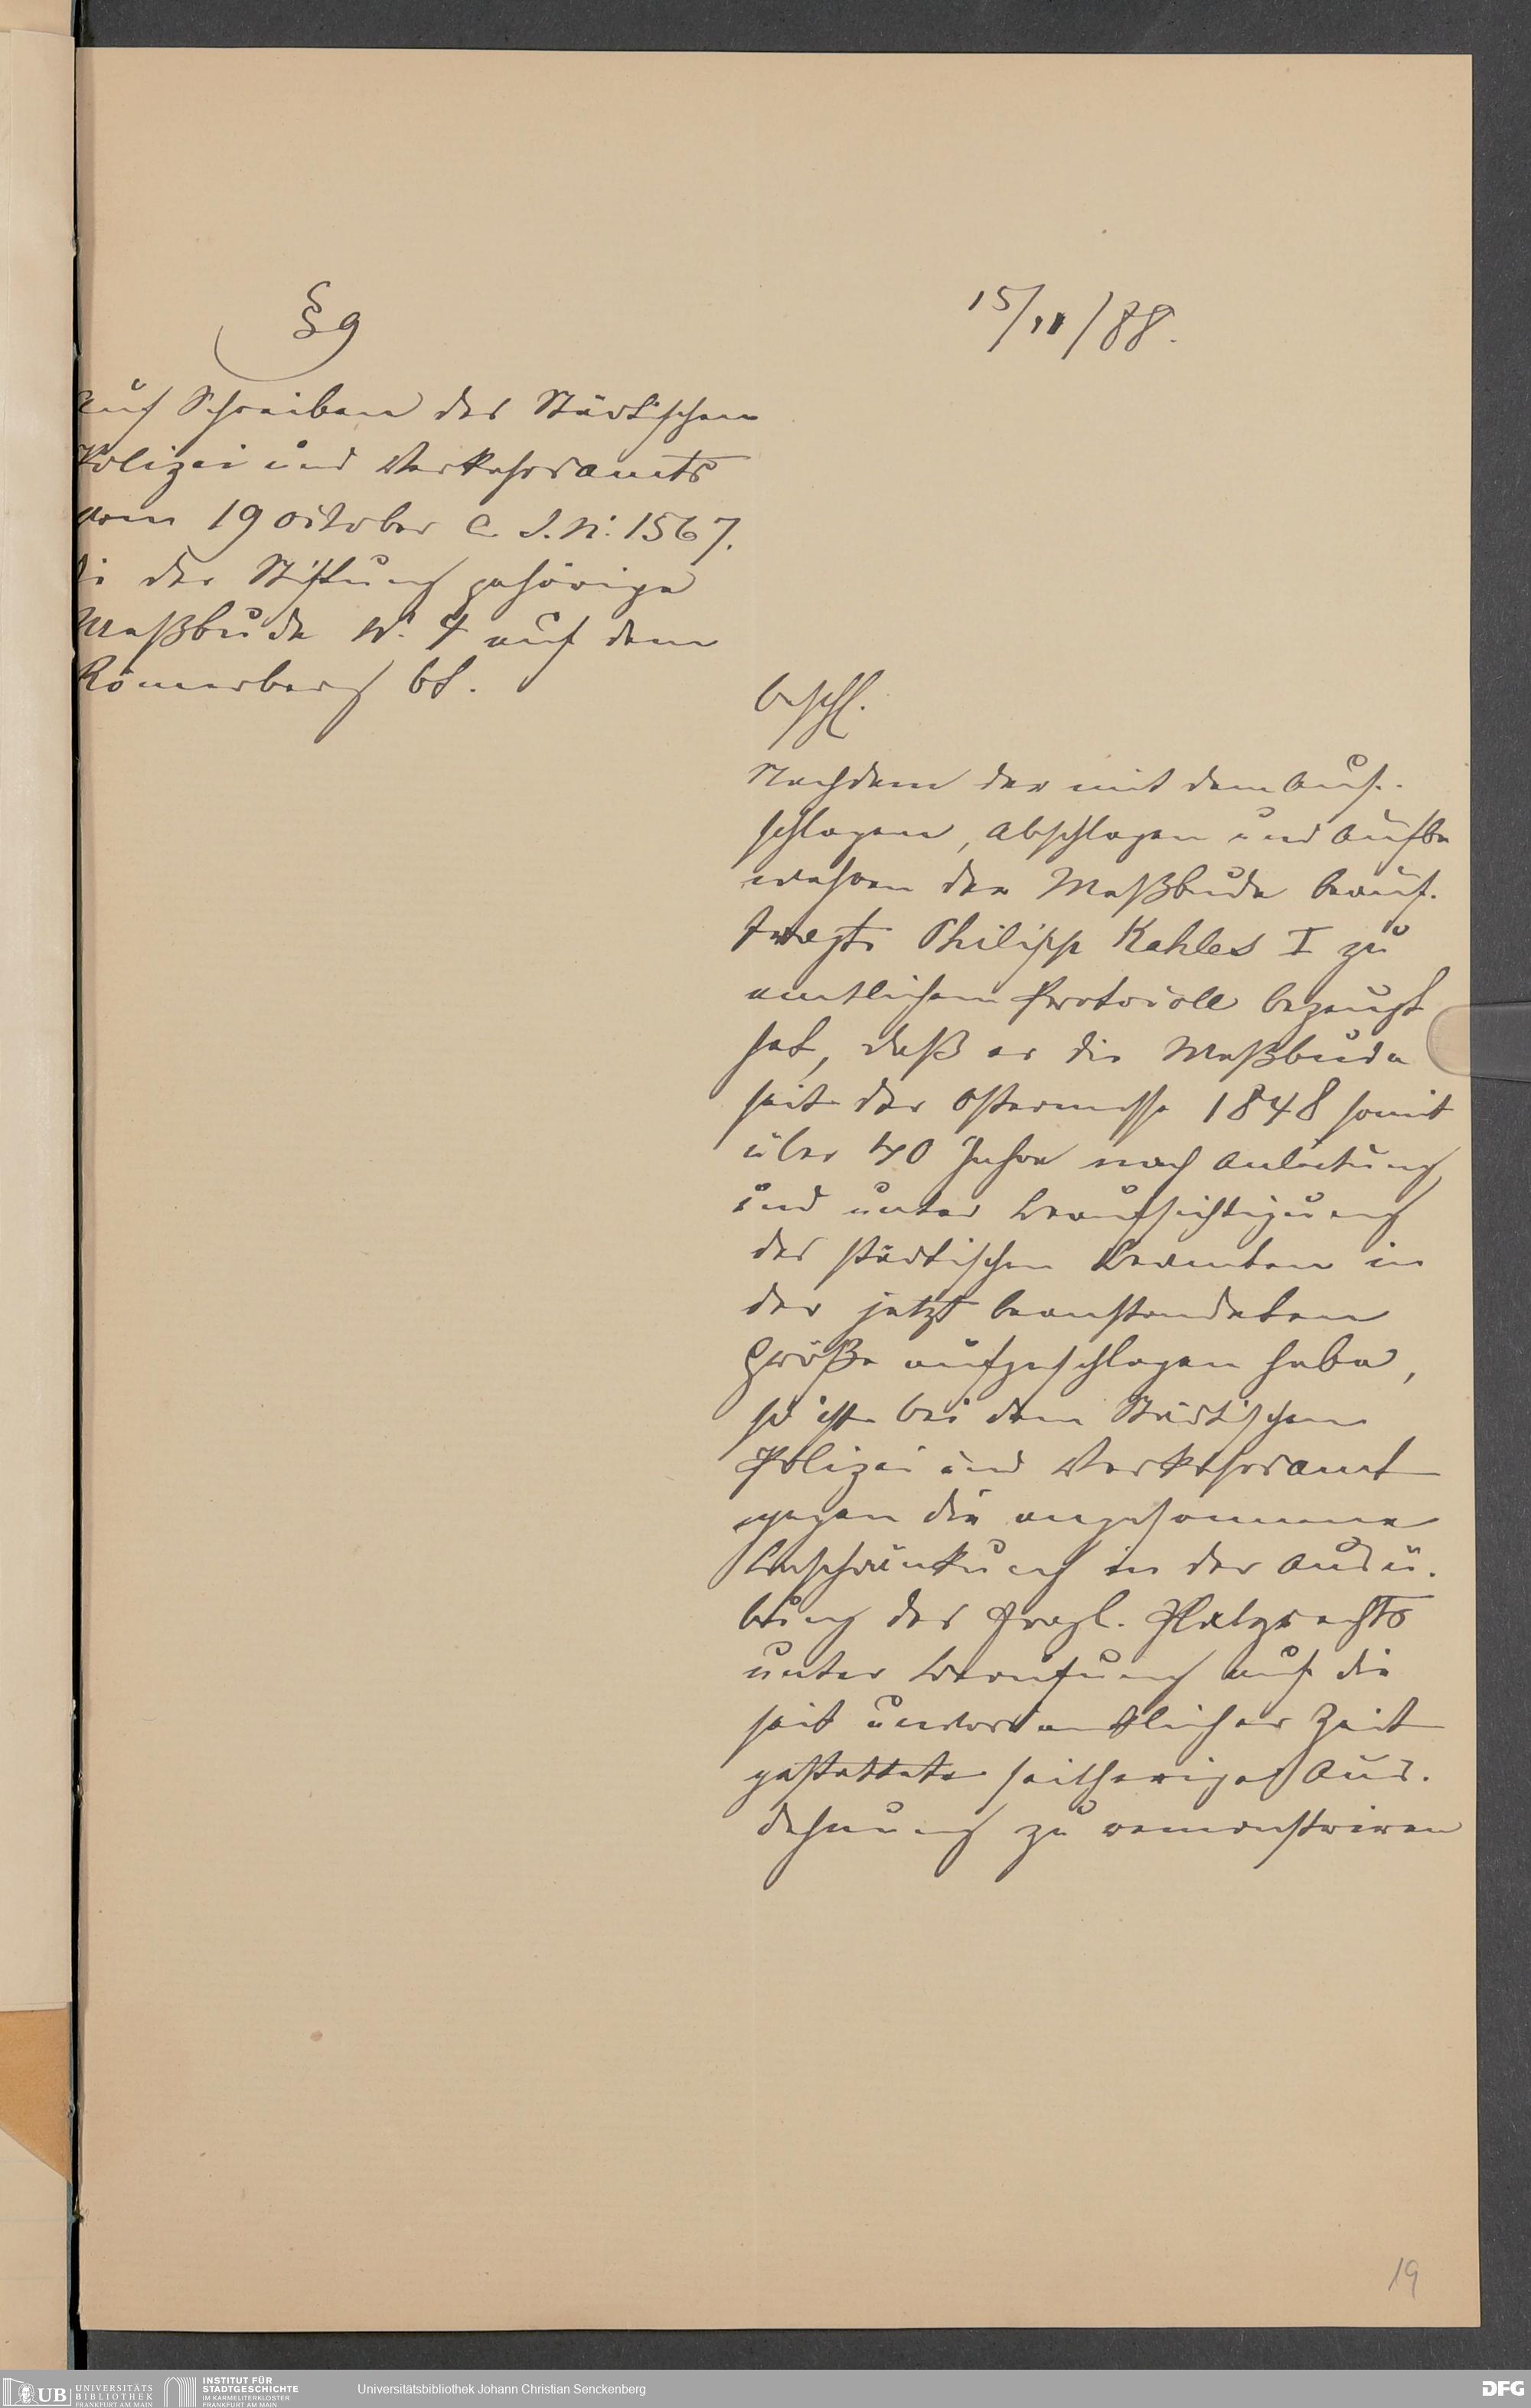 § 9
15/11/88.
Auf Schreiben des Städtischen
Polizei und Verkehrsamts
vom 19 October c. J. N: 1567.
die der Stiftung gehörige
Meßbude N: 4 auf dem
Römerberg bt.
beschl.
Nachdem der mit dem Auf-
schlagen, Abschlagen und Aufbe
wahren der Meßbude beauf-
tragte Philipp Kahles I zu
amtlichem Protocoll bezeugt
hat, daß er die Meßbude
seit der Ostermesse 1848 somit
über 40 Jahre nach Anleitung
und unter Beaufsichtigung
der städtischen Beamten in
der jetzt beanstandeten
Größe aufgeschlagen habe,
so ist bei dem Städtischen
Polizei und Verkehrsamt
gegen die angesonnene
Beschränkung in der Ausü-
bung des fragl. Platzrechts
unter Berufung auf die
seit unvordenklicher Zeit
gestattete seitherige Aus-
dehnung zu remonstriren
19
UB UNIVERSITÄTS
BIBLIOTHEK
FRANKFURT AM MAIN
INSTITUT FÜR
STADTGESCHICHTE
IM KARMELITERKLOSTER
FRANKFURT AM MAIN
Universitätsbibliothek Johann Christian Senckenberg
DFG